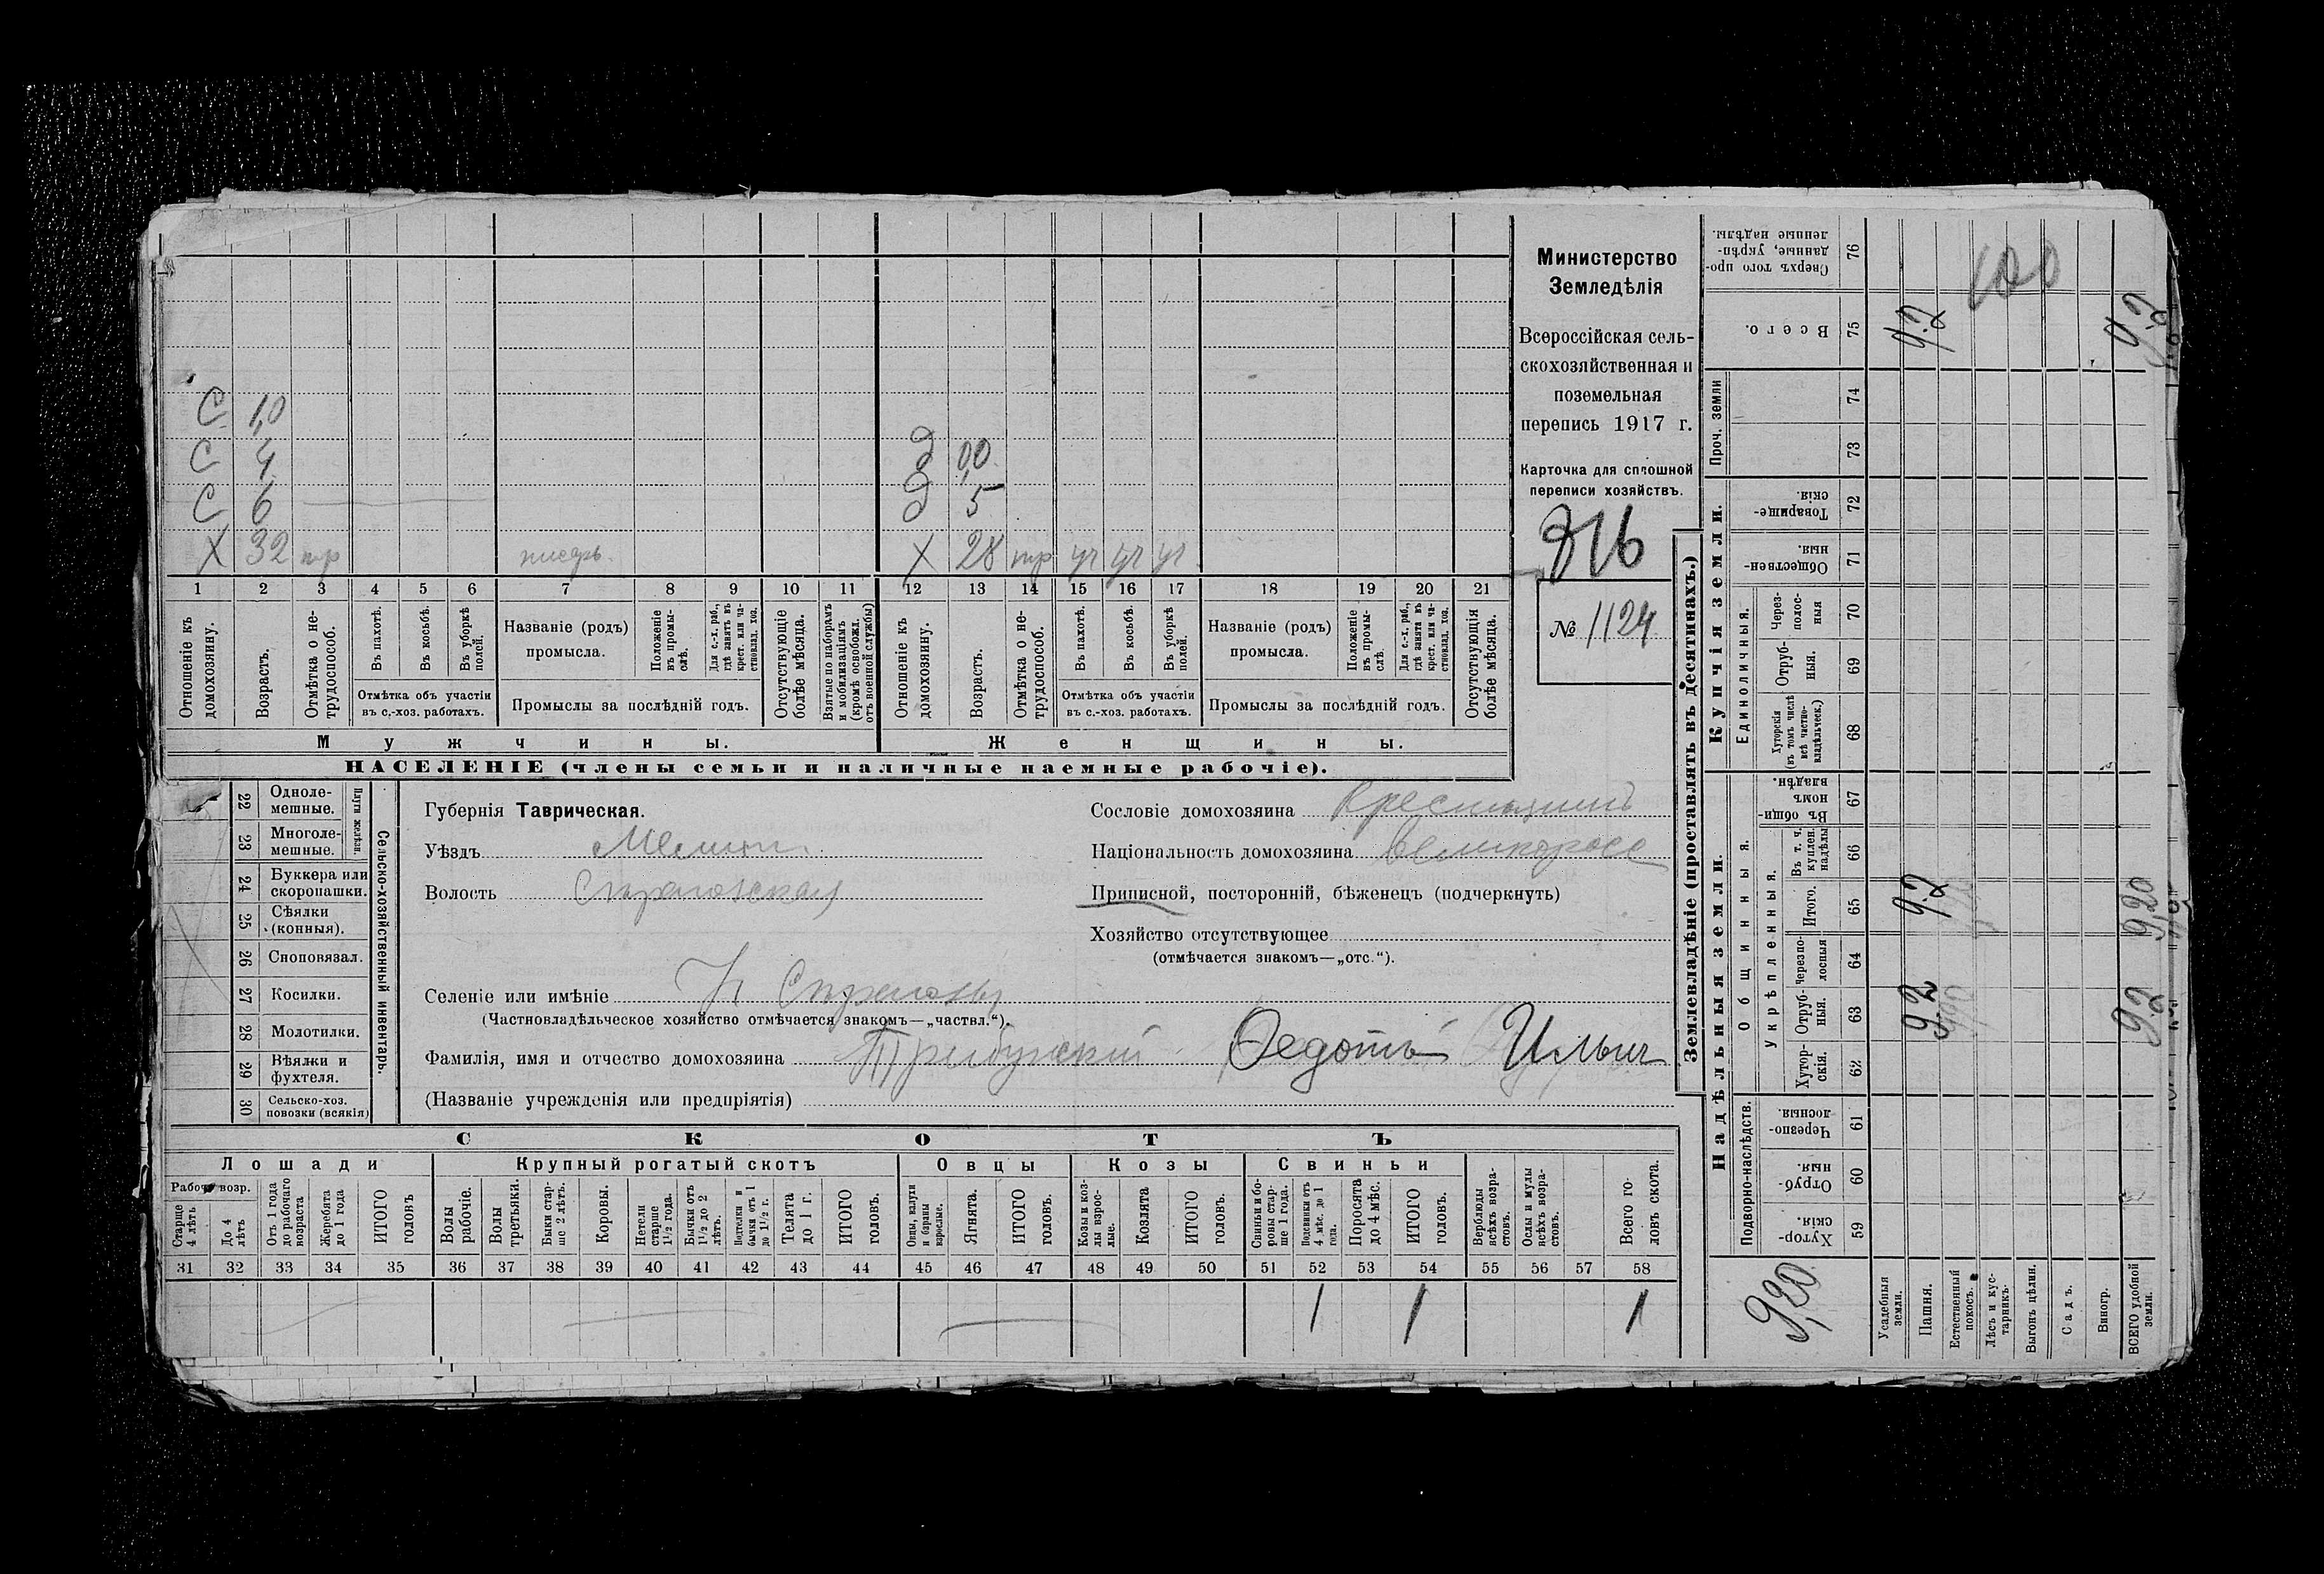 С 1,0
С 4 д 0,0
С 6 д 5
Х 32 тр писарь Х 28 тр уч уч уч
1 2 3 4 5 6 7 8 9 10 11 12 13 14 15 16 17 18 19 20 21
Отношеніе къ домохозяину.
Возрастъ.
Отмѣтка о не-
трудоспособ.
Въ пахотѣ.
Въ косьбѣ.
Въ уборкѣ полей.
Отмѣтка объ участіи
въ с.-хоз. работахъ.
Названіе (родъ)
промысла.
Положеніе въ промы-
слѣ.
Для с.-х. раб., гдѣ занятъ въ крест. или ча-
стновлад. хоз.
Промыслы за послѣдній годъ.
Отсутствующіе болѣе мѣсяца.
Взятые по наборамъ и мобилизаціямъ (кромѣ освобожд. отъ военной службы)
Отношеніе къ домохозяину.
Возрастъ.
Отмѣтка о не-
трудоспособ.
Въ пахотѣ.
Въ косьбѣ.
Въ уборкѣ полей.
Отмѣтка объ участіи
въ с.-хоз. работахъ.
Названіе (родъ)
промысла.
Положеніе въ промы-
слѣ.
Для с.-х. раб., гдѣ занята въ крест. или ча-
стновлад. хоз.
Промыслы за послѣдній годъ.
Отсутствующія болѣе мѣсяца.
Мужчины. Женщины.
НАСЕЛЕНІЕ (члены семьи и наличные наемные рабочіе).
Министерство
Земледѣлія
Всероссійская сель-
скохозяйственная и
поземельная
перепись 1917 г.
Карточка для сплошной
переписи хозяйствъ.
816
№ 1124
22 Одноле-
мешные.
23 Многоле-
мешные.
Плуги желѣзн.
24 Буккера или
скоропашки.
25 Сѣялки
(конныя).
26 Сноповязал.
27 Косилки.
28 Молотилки.
29 Вѣялки и
фухтеля.
30 Сельско-хоз.
повозки (всякія)
Сельско-хозяйственный инвентарь.
Губернія Таврическая.
Уѣздъ Мелит.
Волость Строгановская
Селеніе или имѣніе Н Строгановы
(Частновладѣльческое хозяйство отмѣчается знакомъ—„частвл.“).
Фамилія, имя и отчество домохозяина Федотъ Ильич
(Названіе учрежденія или предпріятія)
Сословіе домохозяина Крестьянинъ
Національность домохозяина Великоросс
Приписной, посторонній, бѣженецъ (подчеркнуть)
Хозяйство отсутствующее
(отмѣчается знакомъ—„отс.“).
СКОТЪ
Лошади Крупный рогатый скотъ Овцы Козы Свиньи
Рабоч. возр.
Старше 4 лѣтъ
До 4 лѣтъ
Отъ 1 года до рабочаго возраста
Жеребята до 1 года
ИТОГО головъ
Волы рабочіе.
Волы третьяки.
Быки стар-
ше 2 лѣтъ.
Коровы.
Нетели старше 1½ года.
Бычки отъ 1½ до 2 лѣтъ.
Подтелки и бычки отъ 1 до 1½ г.
Телята до 1 г.
ИТОГО головъ.
Овцы, валухи и бараны взрослые.
Ягнята.
ИТОГО головъ.
Козы и коз-
лы взрос-
лые.
Козлята
ИТОГО головъ.
Свиньи и бо-
ровы стар-
ше 1 года.
Подсвинки отъ 4 мѣс. до 1 года.
Поросята до 4 мѣс.
ИТОГО головъ.
Верблюды всѣхъ возра-
стовъ.
Ослы и мулы всѣхъ возра-
стовъ.
Всего го-
ловъ скота.
31 32 33 34 35 36 37 38 39 40 41 42 43 44 45 46 47 48 49 50 51 52 53 54 55 56 57 58
1 1 1
Землевладѣніе (проставлять въ десятинахъ.)
Сверхъ того про-
данные, укрѣп-
ленные надѣлы.
76
100
Всего.
75
9,2
9,2
Проч. земли
74
73
Купчія земли.
Товарище-
скія.
72
Обществен-
ныя.
71
Единоличныя.
Через-
полос-
ныя
70
Отруб-
ныя.
69
Хуторскія (въ томъ числѣ всѣ частно-
владѣльческ.)
68
Надѣльныя земли.
Общинныя.
Въ общи-
номъ
владѣн.
67
Укрѣпленныя.
Въ т. ч. куплен. надѣлы
66
Итого.
65
9,2
9,20
Черезпо-
лосныя
64
Отруб-
ныя.
63
9,2
9,2
Хутор-
скія.
62
Подворно-наслѣдств.
Черезпо-
лосныя.
61
Отруб-
ныя.
60
Хутор-
скія.
59
9,20
Усадебныя земли.
Пашня.
Естественный покосъ.
Лѣсъ и кус-
тарникъ.
Выгонъ цѣлин.
Садъ.
Виногр.
ВСЕГО удобной земли.